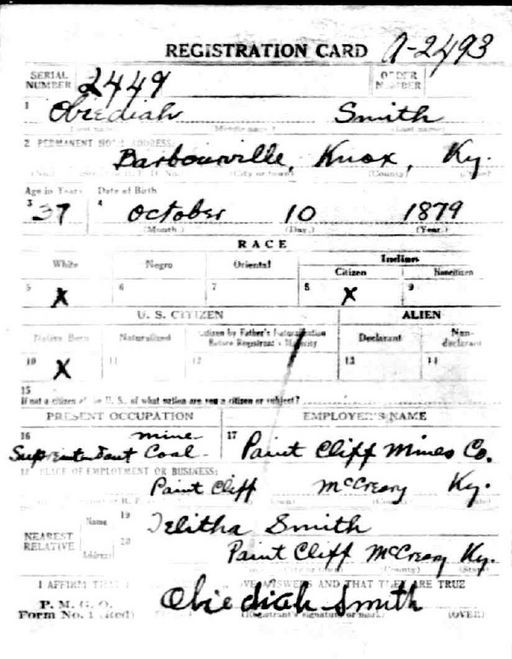 REGISTRATION CARD A-2493
SERIAL NUMBER 2449 ORDER NUMBER
1 Obiediah Smith
(Middle name) (Last name)
2 PERMANENT HOME ADDRESS:
Barbourville, Knox, Ky.
(City or town) (County)
Age in Years Date of Birth
3 37 4 October 10 1879
(Month) (Day.) (Year.)
RACE
White Negro Oriental Indian
Citizen Noncitizen
5 X 6 7 8 X 9
U. S. CITIZEN ALIEN
Native Born Naturalized Citizen by Father's Naturalization Before Registrant's Majority Declarant Non-declarant
10 X 11 12 13 14
15
If not a citizen of the U. S. of what nation are you a citizen or subject?
PRESENT OCCUPATION EMPLOYER'S NAME
16 mine 17
Supretendant Coal Paint Cliff Mines Co.
18 PLACE OF EMPLOYMENT OR BUSINESS:
Paint Cliff McCreary Ky.
NEAREST RELATIVE Name 19 Telitha Smith
Address 20 Paint Cliff McCreary Ky.
I AFFIRM THAT I ANSWERS AND THAT THEY ARE TRUE
P. M. G. O.
Form No. 1 (Red) Obiediah Smith
(Registrant's signature or mark) (OVER)